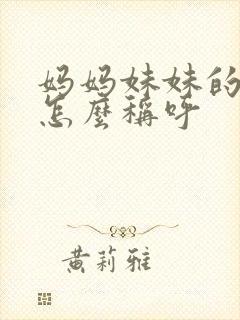 妈妈妹妹的
怎麼稱呼
黄莉雅